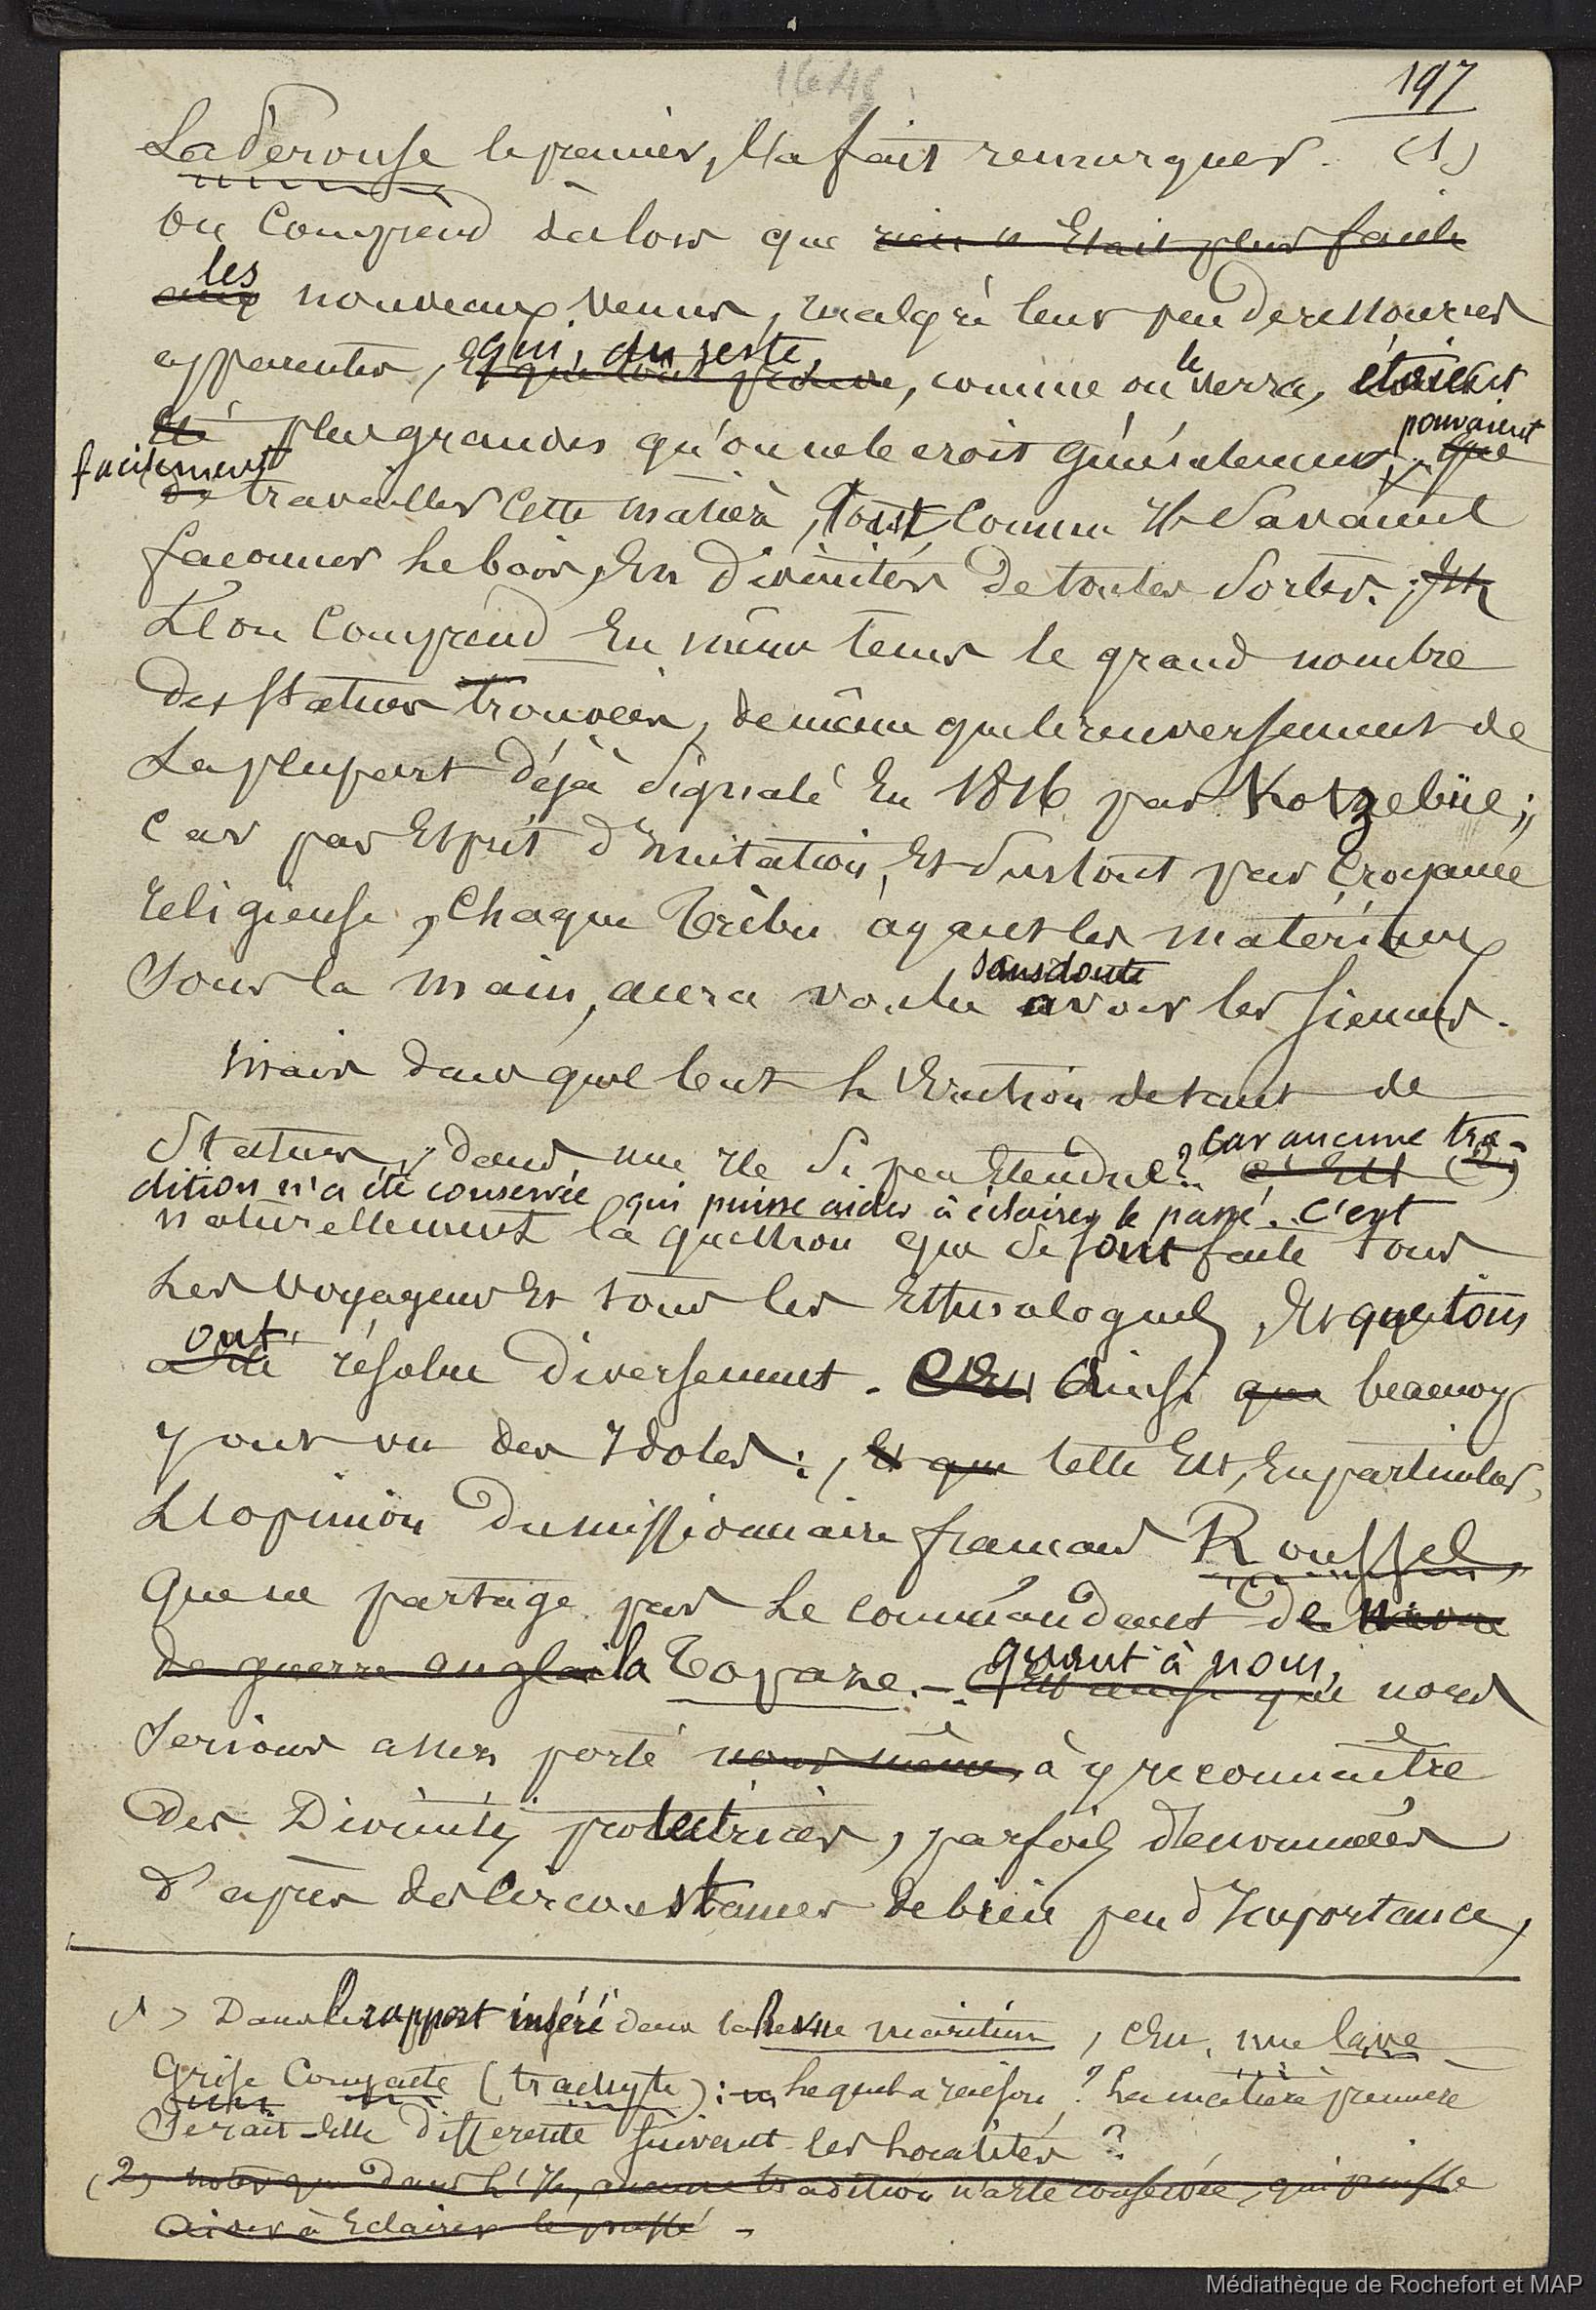 197
LaPérouse le premier, l'a fait remarquer. (1)
on comprend dèslors que rien n'était plus facile
aux les nouveaux venus, malgré leur peu de ressources
apparentes, qui, du reste, comme on le verra, étaient
été plus grandes qu'on ne le croit généralement, pouvaient que
facilement de travailler cette matière, tout comme ils savaient
façonner le bois, en divinités de toutes sortes.
L'on comprend en même tems le grand nombre
des statues trouvées, de même que le renversement de
la plupart déjà signalé en 1816 par Kotzebüe;
car par esprit d'imitation, et surtout par croyance
religieuse, chaque tribu ayant les matériaux
sous la main, aura voulu sans doute avoir les siennes.
Mais dans quel but l'érection de tant de
statues, dans une île si peu étendue? car aucune tra-
c'est (2)
dition n'a été conservée qui puisse aider à éclairer le passé. C'est
naturellement la question que se sont faite tous
les voyageurs et tous les Ethnologues, et que tous
a été ont résolue diversement. Ainsi que beaucoup
y ont vu des Idoles: et que telle est, en particulier,
l'opinion du missionnaire français Roussel,
que ne partage pas le commandant de navire
de guerre anglais la Topaze. — quant à nous, C'est ainsi que nous
serions assez porté nous même à y reconnaître
des Divinités protectrices, parfois dénommées
d'après des circonstances de bien peu d'importance,
(1) Dans le rapport inséré dans la Revue maritime, une lave
grise compacte (trachyte): lequel a raison? La matière première
serait-elle différente suivant les localités?
(2) notez que dans l'île, aucune tradition n'a été conservée, qui puisse
aider à éclairer le passé -
Médiathèque de Rochefort et MAP